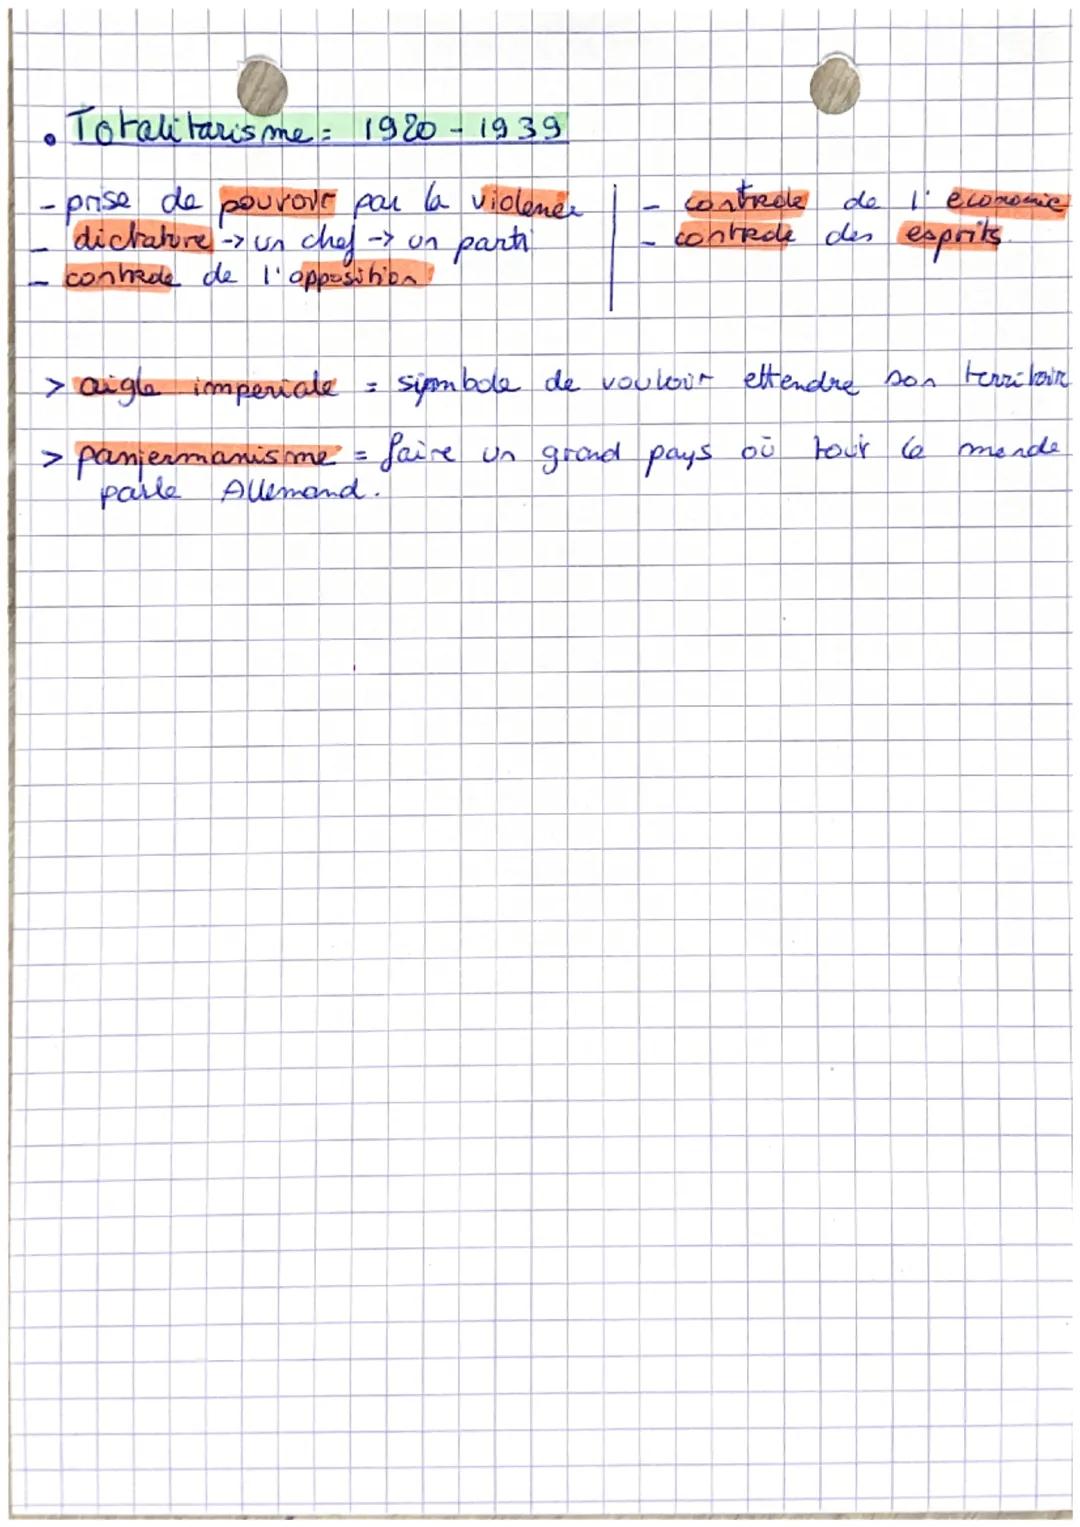 • Totalitarisme : 1920 - 1939
- prise de pouvoir par la violence
- dictature -> un chef -> un parti
- controle de l'opposition
- controle de l'economie
- controle des esprits.
> aigle imperiale = symbole de vouloir ettendre son territoire
> panjermanisme = faire un grand pays où tout le monde
parle Allemand.